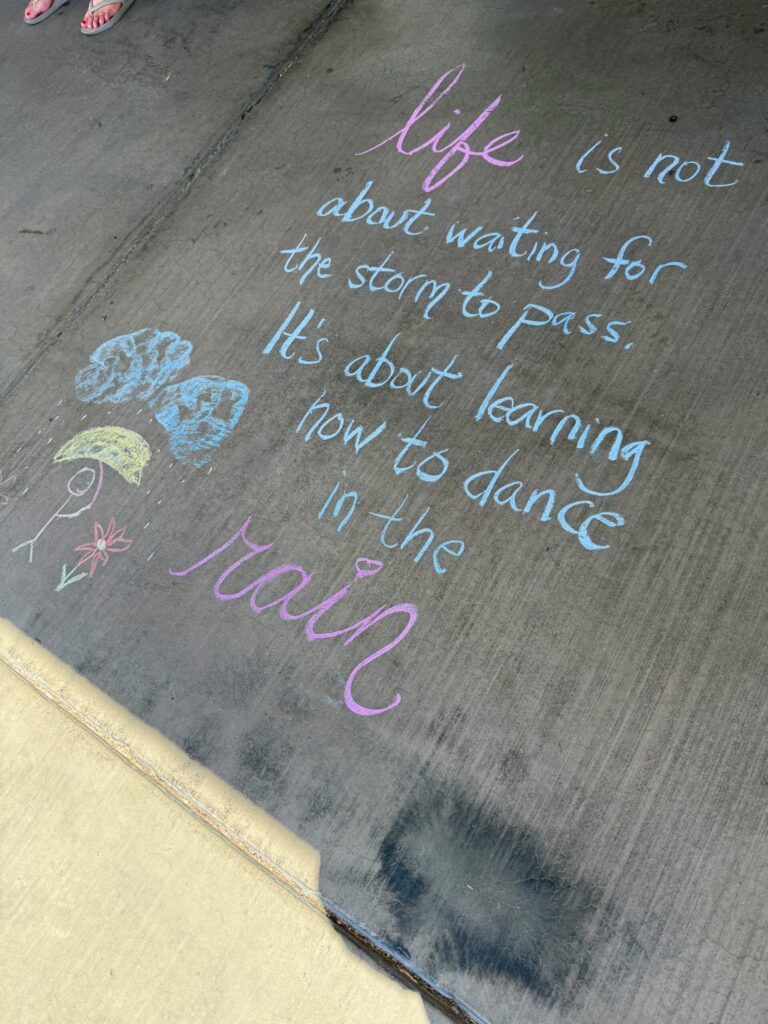 life is not
about waiting for
the storm to pass.
It's about learning
how to dance
in the
rain